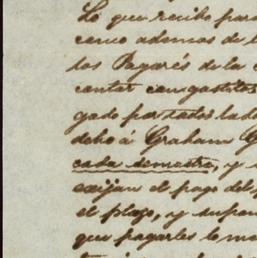 Lo que recibo para
cerco ademas de l
los Pagarés de la
contar con gastos
gado por todos lados
debo á Graham G
cada semestre, y
exijan el pago del
el plazo, y supon
que pagarles lo m